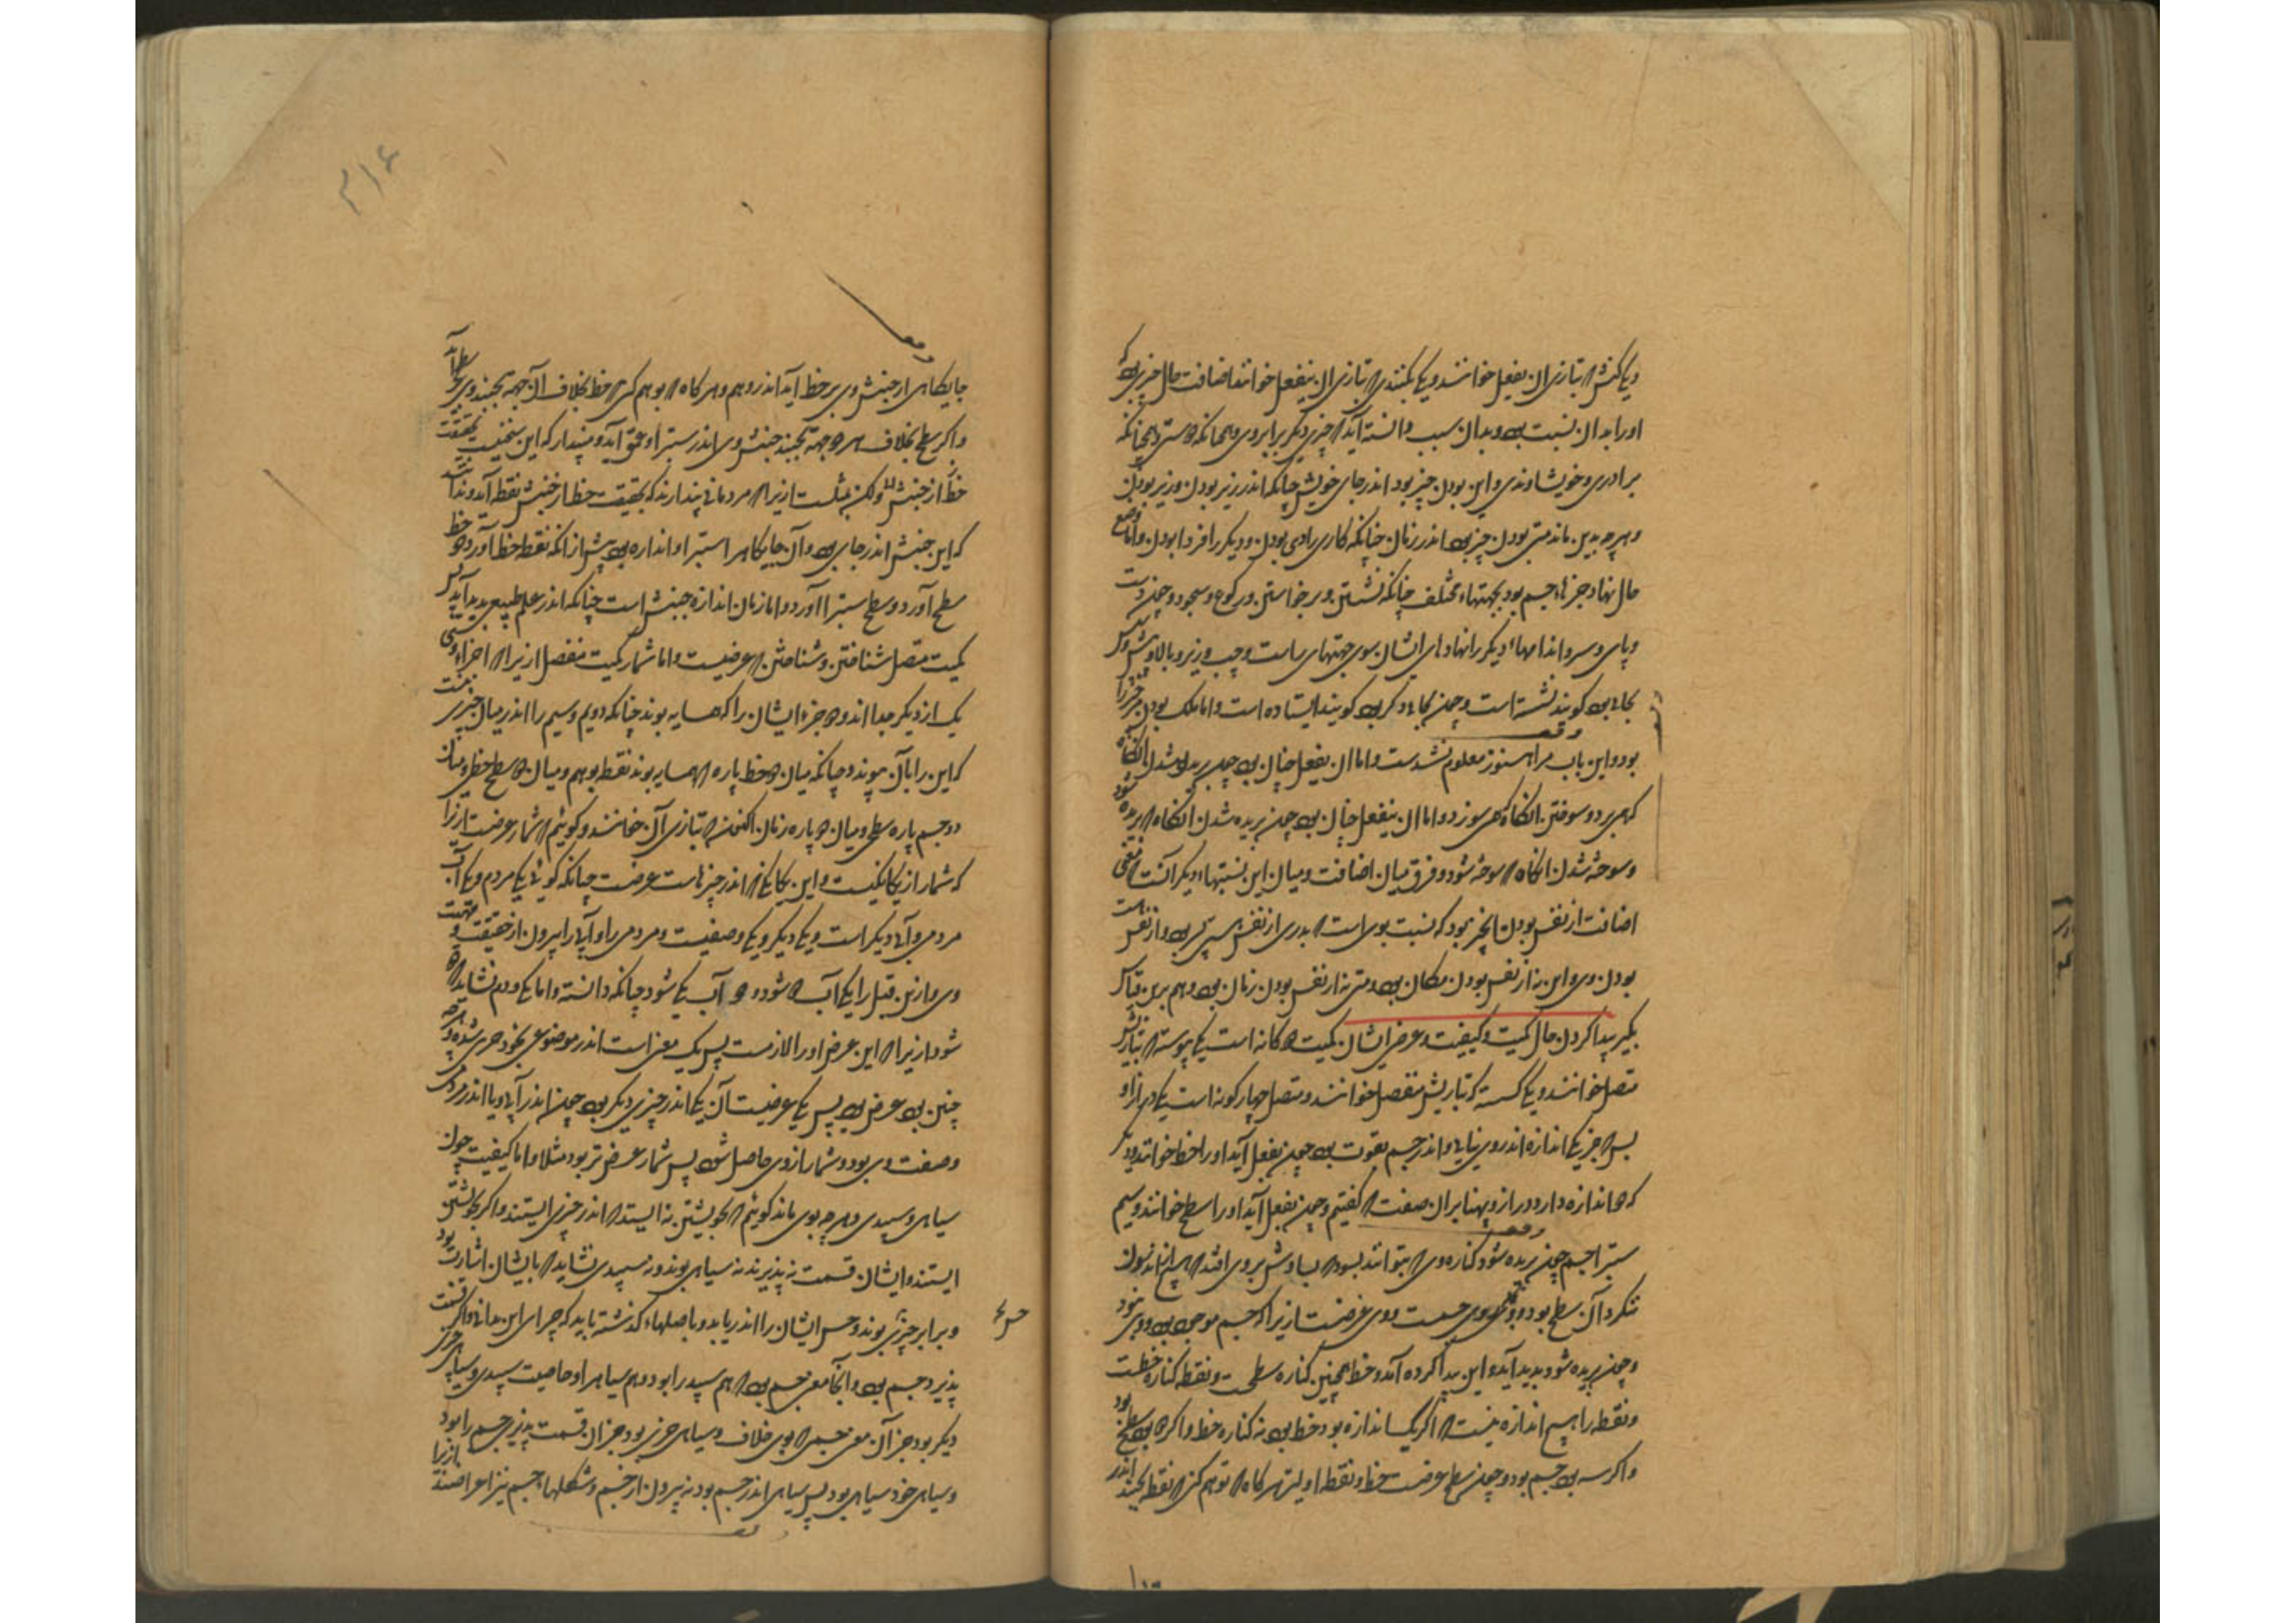 ویکی کنش که بتازی ان یفعل خوانند و یکی بکنندی که بتازی ان ینفعل خوانند اضافت حال چیزی بود که
اورا بدان نسبت بود و بدان سبب دانسته آید که چیزی دیگر برابر وی و همچنانکه دوستی و همچنانکه
برادری و خویشاوندی و این بودن چیز بود اندر جای خویش چنانکه اندر زیر بودن و زبر بودن
و هرچه بدین ماند و متی بودن چیز بود اندر زمان چنانکه کاری را دی بودن و دیگر را فردا بودن و اما وضع
حال نهاد جزءهاء جسم بود بجهتهاء مختلف چنانکه نشستن و برخواستن و رکوع و سجود و چون دست
و پای و سر و اندامهاء دیگر را نهادهای ایشان سوی جهتهای راست و چپ و زیر و بالا و پیش و پس
بحالی بود گویند نشسته است و چون بحالی دیگر بود گویند ایستاده است و اما ملک بودن چیز چیز را
بود و این باب مرا هنوز معلوم نشدست و اما ان یفعل چنان بود چون بریدن انگاه
که همی برد و سوختن انگاه که همی سوزد و اما ان ینفعل چنان بود چون بریده شدن انگاه که بریده شود
و سوخته شدن انگاه که سوخته شود و فرق میان اضافت و میان این نسبتهاء دیگر آنست که معنی
اضافت از نفس بودن آن چیز بود که نسبت بوی است که پدری از نفس هستی پسر بود و از نفس هست
بودن وی و این نه از نفس بودن مکان بود و متی نه از نفس بودن زمان بود و هم برین قیاس
بگیر پیدا کردن حال کمیت و کیفیت و عرضی ایشان کمیت دو گانه است یکی پیوسته که بتازیش
متصل خوانند و یکی گسسته که بتازیش منفصل خوانند و متصل چهار گونه است یکی درازا و
بس که جز یکی اندازه اندر وی نیابی و اندر جسم بقوت بود چون بفعل آید او را خط خوانند و دیگر
که دو اندازه دارد درازا و پهنا بران صفت که گفتیم و چون بفعل آید او را سطح خوانند و سیم
ستبرا جسم چون بریده شود کناره وی که بتوانند بسودن که بساوش بر وی افتد که هیچ اندرون
ننگرد آن سطح بود و وی روی جسمست و وی عرضست زیرا که جسم موجود بود و وی نبود
و چون بریده شود پدید آید و این پیدا کرده آمد و خط همچنین کناره سطحست و نقطه کناره خطست
و نقطه را هیچ اندازه نیست که اگر یکسا اندازه بود خط بود نه کناره خط و اگر دو بود سطح بود
و اگر سه بود جسم بود و چون سطح عرضست خط و نقطه اولیتر هرگاه که توهم کنی که نقطه بجنبد اندر
جایگاهی از جنبش وی بر خط آید اندر وهم و هرگاه که بوهم گیری که خط بخلاف آن جهه بجنبد وی سطح آید
و اگر سطح بخلاف هر دو جهة بجنبد جنبش وی اندر ستبرا و عمق آید و مپندار که این سخنیست بحقیقت
خط از جنبش ولکن مثلست زیرا که مردمانی پندارند که بحقیقت خط از جنبش نقطه آید و ندانند
که این جنبش اندر جای بود و آن جایگاه را ستبرا و اندازه بود پیش از انکه نقطه خط آورد و خط
سطح آورد و سطح ستبرا آورد و اما زمان اندازه جنبش است چنانکه اندر علم طبیعی پدید آید پس
کمیت متصل شناختن و شناختن که عرضیست و اما شمار کمیت منفصل زیرا که اجزاء وی
یک از دیگر جدااند و دو جزء ایشان را که همسایه بوند چنانکه دویم و سیم را اندر میان چیزی نیست
که این را بآن پیوندد چنانکه میان دو خط پاره که همسایه بوند نقطه بوهم و میان دو سطح خطی و میان
دو جسم پاره سطحی و میان دو پاره زمان اکنون که بتازی آن خوانند و گوئیم که شمار عرضست زیرا
که شمار از یگانگیست و این یگانگی که اندر چیزهاست عرضست چنانکه گوئی یکی مردم و یکی آب
مردمی و آبی دیگر است و یکی دیگر و یکی وصفیست مردمی را و آبی را بیرون از حقیقت و ماهیت
وی و ازین قبل را یکی آب دو شود و دو آب یکی شود چنانکه دانسته و اما یکی مردم نشاید که دو
شود زیرا که این عرض او را لازمست پس یک معنی است اندر موضوعی بخود چیزی شده و هرچه
چنین بود عرض بود پس یکی عرضیست آن یکی اندر چیزی دیگر بود چون اندر آبی و یا اندر مردمی
و صفت وی بود و شمار از وی حاصل شود پس شمار عرض تر بود مثلا و اما کیفیت چون
سیاهی و سپیدی و هرچه بوی ماند گوئیم که بخویشتن نه ایستد که اندر چیزی ایستند و اگر بخویشتن
ایستند و ایشان قسمت نپذیرند نه سیاهی بوند و نه سپیدی نشاید که بایشان اشارت بود
و برابر چیزی بوند و حس ایشان را اندر یابد و باصلهاء گذشته باید که چرای این بدانی و اگر قسمت
پذیرد جسم بود و آنجا معنی جسمی بود که هم سپید را بود و هم سیاه را و خاصیت سپیدی و سیاهی چیزی
دیگر بود جز آن معنی جسمی که بوی خلاف و سیاهی چیزی بود جز آن قسمت پذیر جسم را بود
و سیاهی خود سیاهی بود پس سیاهی اندر جسم بود نه بیرون از جسم و شکلها جسم نیز اعراضند ازیرا